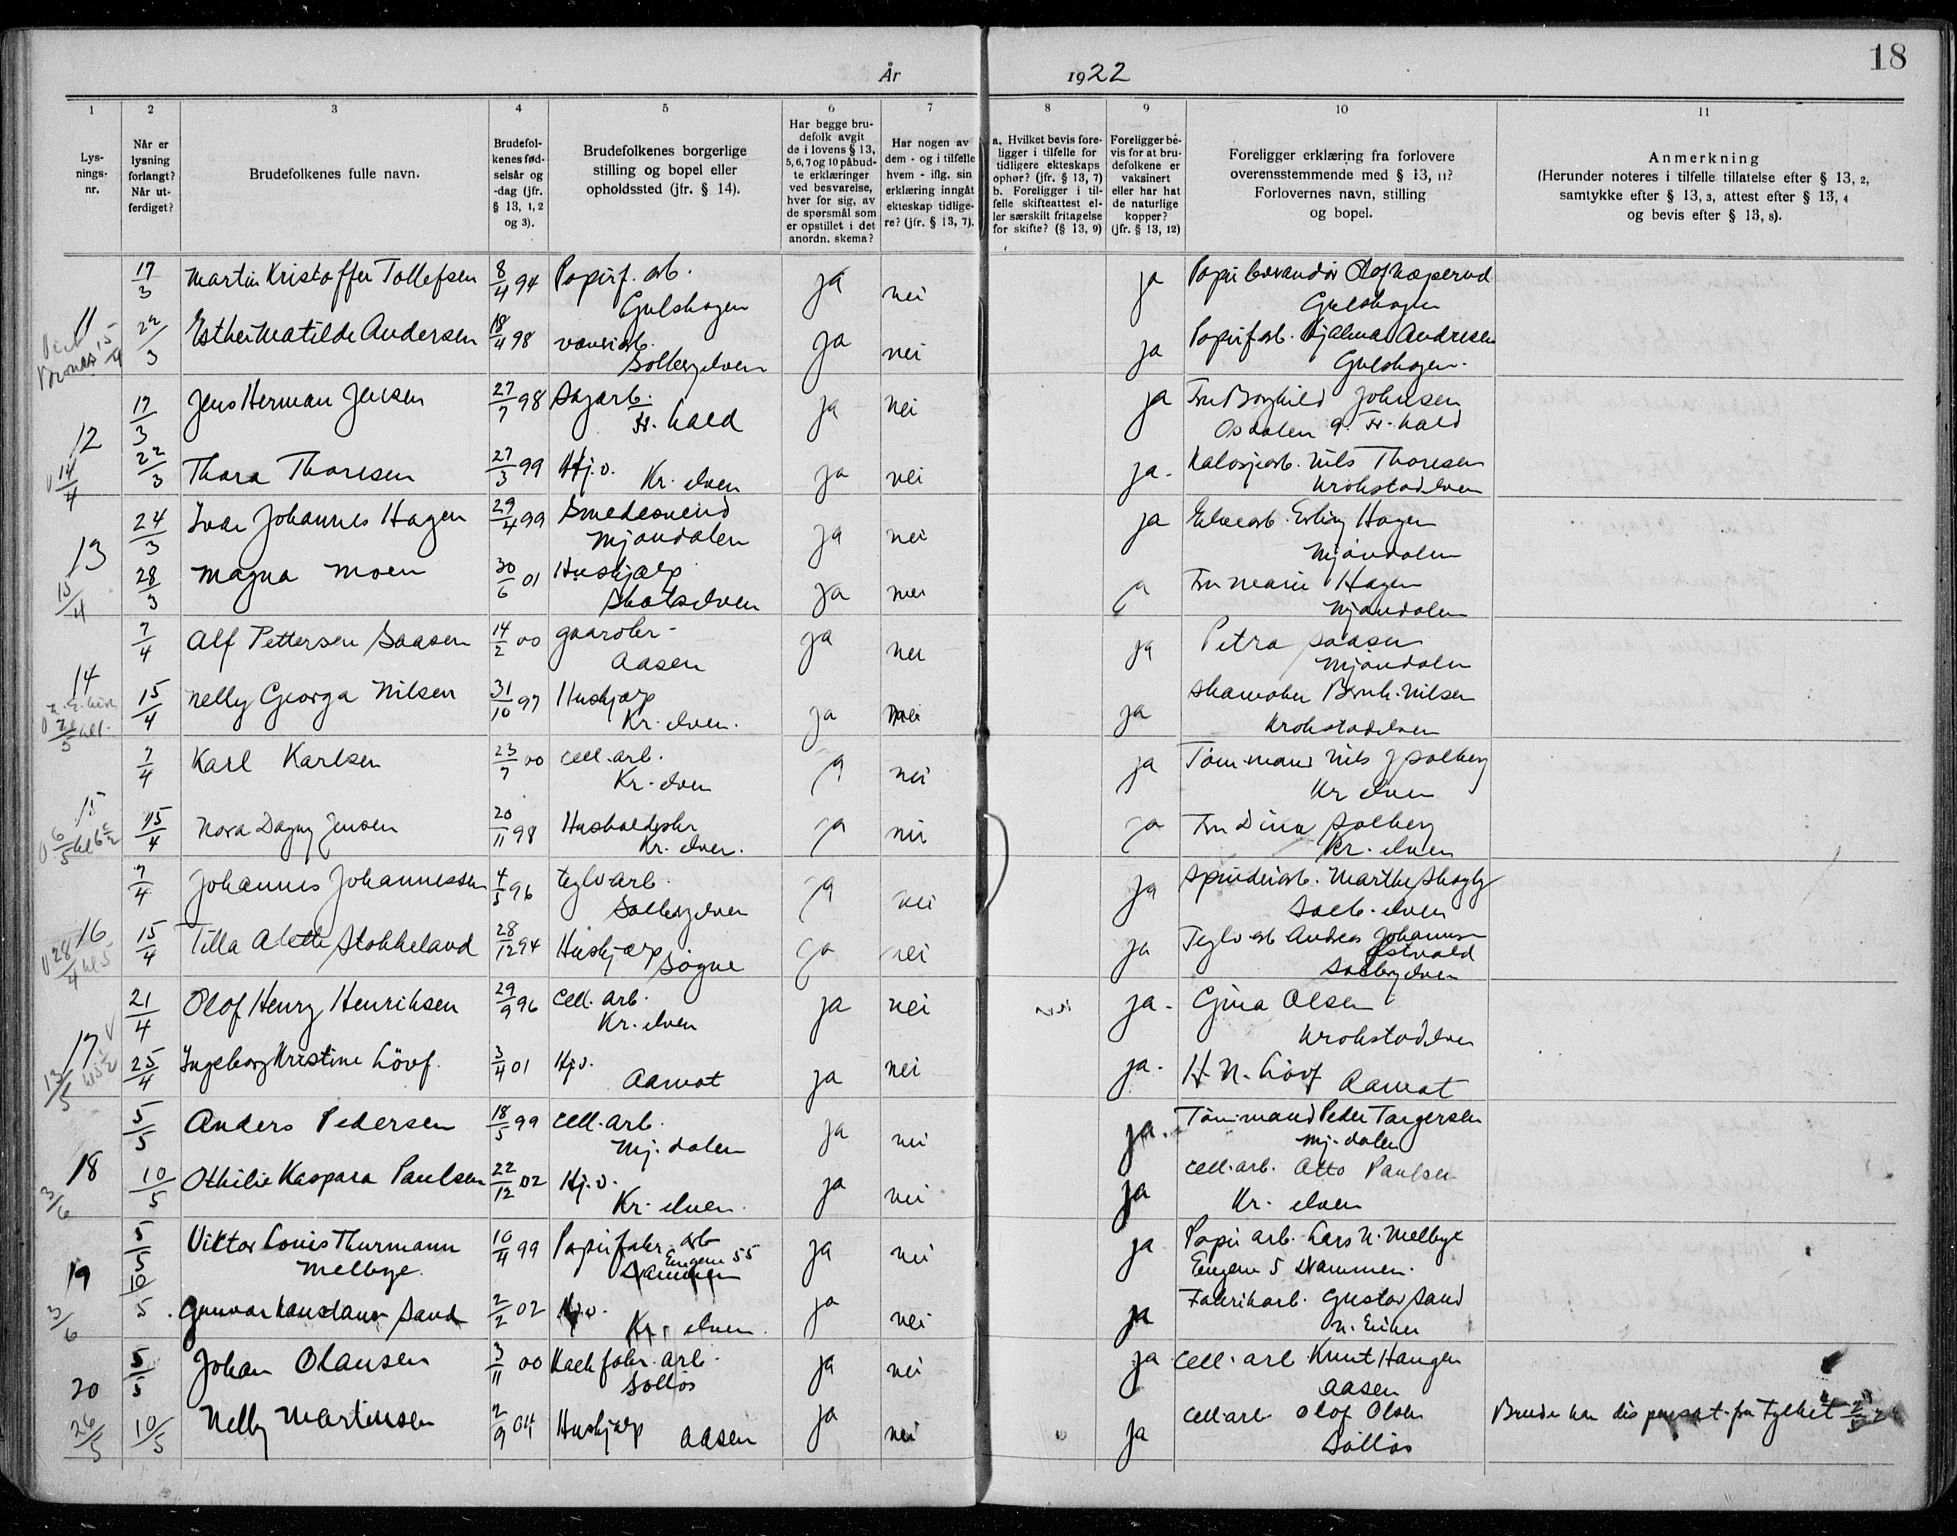 18
År 1922
1 2 3 4 5 6 7 8 9 10 11
Lys-
nings-
nr.
Når er
lysning
forlangt?
Når ut-
ferdiget?
Brudefolkenes fulle navn.
Brudefol-
kenes fød-
selsår og
-dag (jfr.
§ 13, 1, 2
og 3).
Brudefolkenes borgerlige
stilling og bopel eller
opholdssted (jfr. § 14).
Har begge bru-
defolk avgit
de i lovens § 13,
5, 6, 7 og 10 påbud-
te erklæringer
ved besvarelse,
hver for sig, av
de spørsmål som
er opstillet i det
anordn. skema?
Har nogen av
dem - og i tilfelle
hvem - iflg. sin
erklæring inngåt
ekteskap tidlige-
re? (jfr. § 13, 7).
a. Hvilket bevis fore-
ligger i tilfelle for
tidligere ekteskaps
ophør? (jfr. § 13, 7)
b. Foreligger i til-
felle skifteattest el-
ler særskilt fritagelse
for skifte? (§ 13, 9)
Foreligger be-
vis for at bru-
defolkene er
vaksinert
eller har hat
de naturlige
kopper?
(jfr. § 13, 12)
Foreligger erklæring fra forlovere
overensstemmende med § 13, 11?
Forlovernes navn, stilling
og bopel.
Anmerkning
(Herunder noteres i tilfelle tillatelse efter § 13, 2,
samtykke efter § 13, 3, attest efter § 13, 4
og bevis efter § 13, 8).
17/3 Martin Kristoffer Tollefsen 8/4 94 Papirf. arb. ja nei ja
Gulskogen Gulskogen
11 22/3 Esther Matilde Andersen 18/4 98 ja nei ja Papirf arb. Hjalmar Andresen
15/4 Solbergelven Gulskogen.
17/3 Jens Herman Jensen 27/7 98 Sagarb. ja nei ja Fru Borghild Johnsen
Fr. hald Osdalen 9. Fr. hald
12 22/3 Thora Thoresen 27/3 99 Hj. v. ja nei ja - Kalosjearb. Nils Thoresen
14/4 Kr. elven Krokstadelven
13 24/3 Ivar Johannes Hagen 29/4 99 Smedesvend ja nei ja Erling Hagen
Mjøndalen Mjøndalen
15/4 28/3 Magna Moen 30/6 01 Hushjælp ja nei ja Fru Marie Hagen
Skotselven Mjøndalen
7/4 Alf Pettersen Saasen 14/2 00 gaardbr - ja nei ja Petra Saasen
Aasen Mjøndalen
14 15/4 Nelly Georga Nilsen 31/10 97 Hushjælp ja nei ja Bernh. Nilsen
Kr. elven. Krokstadelven
7/4 Karl Karlsen 23/7 00 cell. arb. ja nei ja Tømmermand Nils J Solberg
Kr. elven Kr elven
15 15/4 Nora Dagny Jensen 20/11 98 Husholderske ja nei ja Fru Dina Solberg
6/5 Kr. elven. Kr. elven
7/4 Johannes Johannessen 4/5 96 teglv arb. ja nei ja Spinderiarb. Marthe Skogly
Solbergelven Solb. elven
16 15/4 Tilla Alette Stokkeland 28/12 94 Hushjælp ja nei ja Teglv arb Andreas Johannsen
28/4 kl 5 Søgne Østvold
Solbergelven
21/4 Olof Henry Henriksen 29/9 96 cell. arb. ja nei nei ja - Gina Olsen
Kr. elven Krokstadelven
17 25/4 Ingeborg Kristine Løvf. 3/4 01 Hj. v. ja nei ja - H. N. Løvf
13/5 Aamot Aamot
5/5 Anders Pedersen 18/5 99 cell. arb. ja nei ja. Tømmermand Peder Torgersen
Mj. dalen Mj. dalen
18 10/5 Othilie Kaspara Paulsen 22/12 02 Hj. v. ja nei ja cell. arb. Otto Paulsen
3/6 Kr. elven. Kr. elven
5/5 Viktor Louis Thurmann 10/11 99 Papirfabr. arb ja nei ja Papir arb. Lars N. Melbye
Melbye. Engene 55 Drammen Engene 5 Drammen.
19 10/5 Gunvor Konstanse Sand 2/2 02 Hj. v. ja nei ja Fabrikarb. Gustav Sand
3/6 Kr. elven. N. Eiker
5/5 Johan Olausen 3/11 00 Kaelfabr. arb. ja nei ja cell. arb Knut Haugen
Solløs Aasen
20 10/5 Nelly Martinsen 2/9 04 Hushjælp Aasen ja nei ja cell arb. Olof Olsen
26/5 Solløs
Bruden har dispensat. fra Fylket